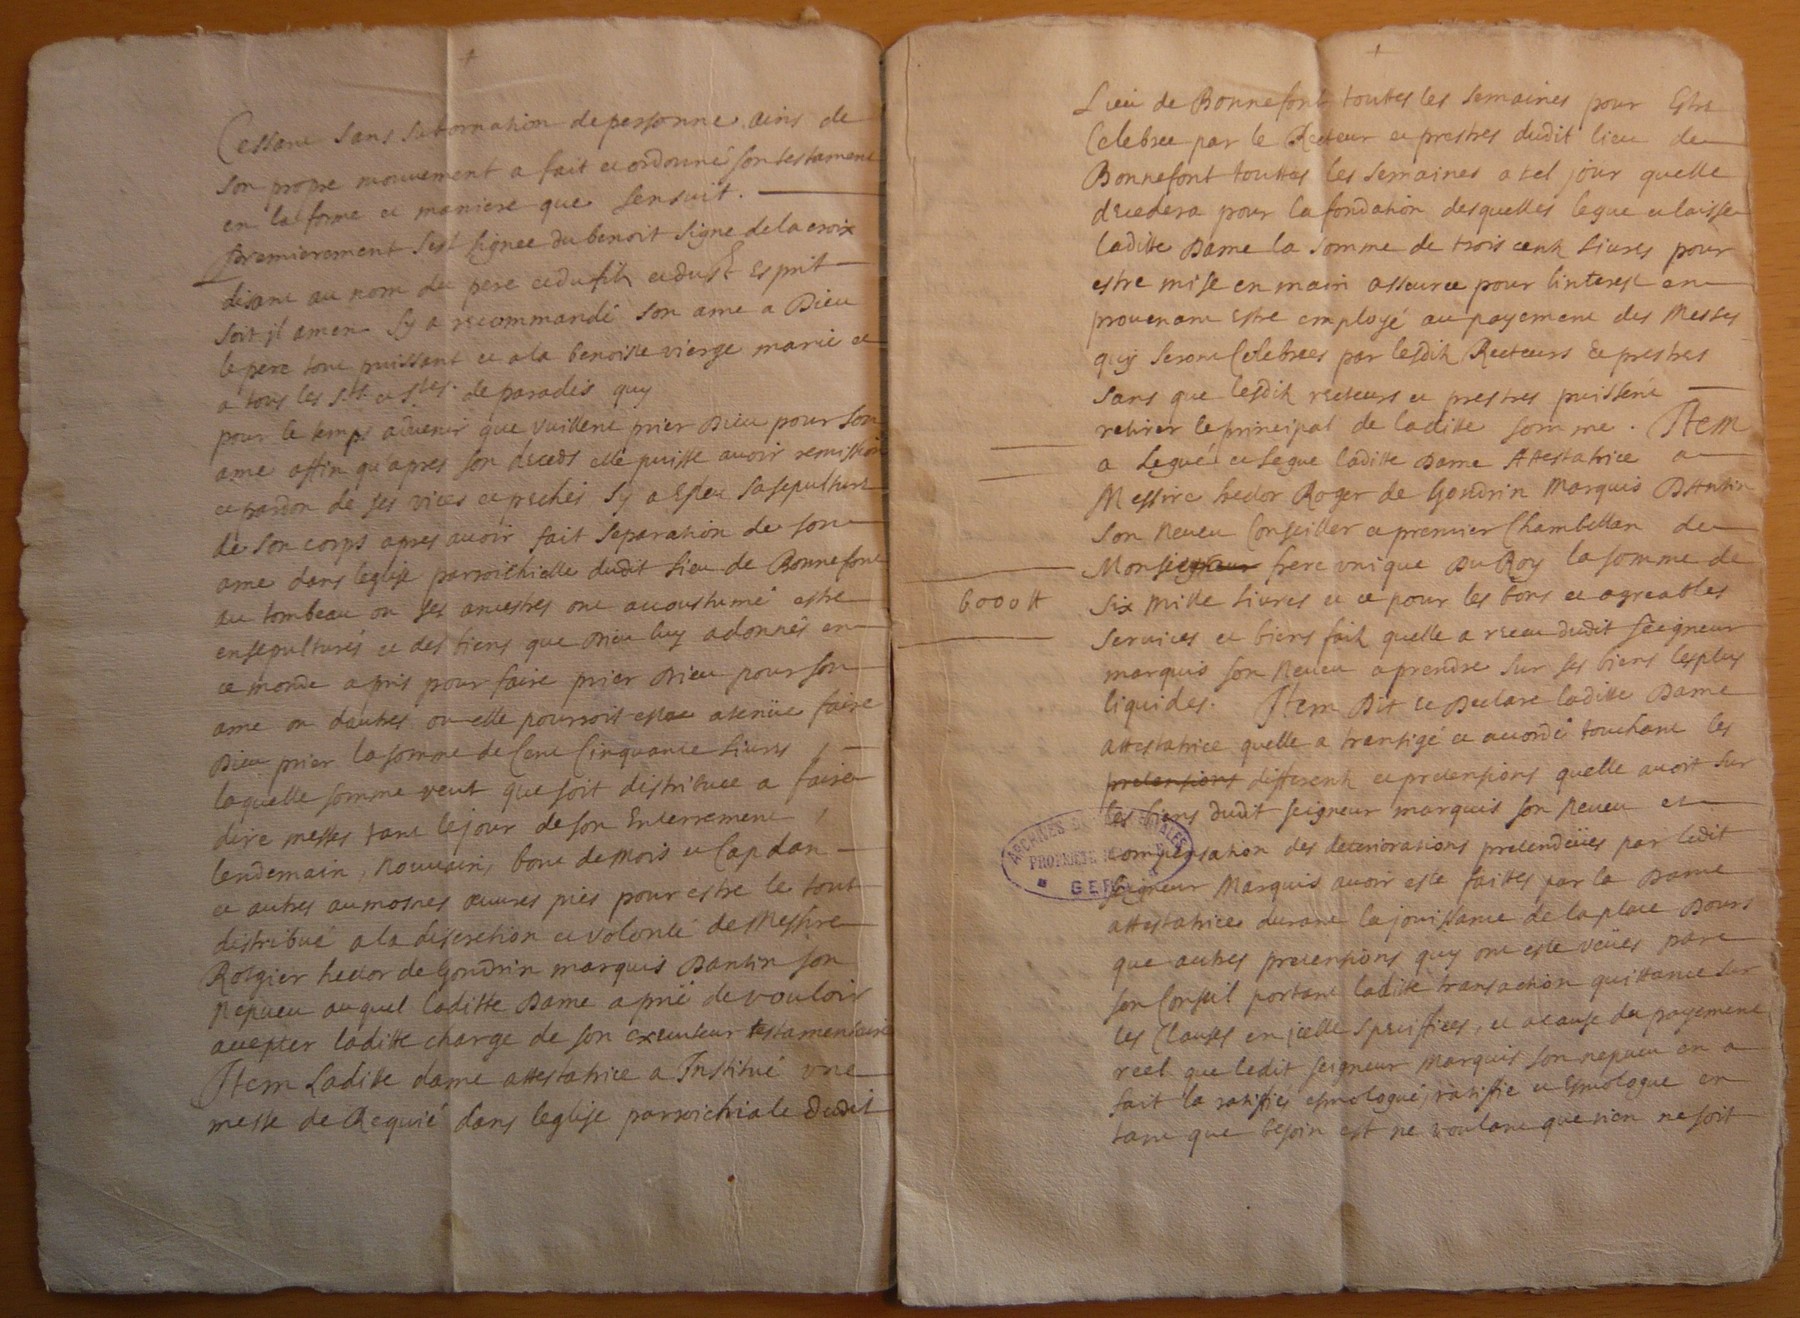 Cessant sans subornation de personne ains de
son propre mouvement a fait et ordonné son testament
en la forme et maniere que sensuit.
premierement sest signee du benoit signe de la croix
disant au nom du pere et du filz et du St Esprit
soit il amen sy a recommandé son ame a Dieu
le pere tout puissant et a la benoiste vierge marie et
a tous les Sts et Stes de paradis quy
pour le temps advenir que vuillent prier Dieu pour son
ame affin qu'apres son deceds elle puisse avoir remission
et pardon de ses vices et pechés sy a esleu sa sepulture
de son corps apres avoir fait separation de son
ame dans leglise parroichielle dudit lieu de Bonnefont
au tombeau ou ses ancestres ont accoustumé estre
ensepulturés et des biens que Dieu luy a donnés en
ce monde a pris pour faire prier Dieu pour son
ame ou dautres ou elle pourroit estre atenüe faire
Dieu prier la somme de Cent Cinquante Livres
laquelle somme veut que soit distribuee a faire
dire messes tant le jour de son Enterrement
lendemain, Nouvain, bout de mois et Cap dan
et autres aumosnes œuvres pies pour estre le tout
distribué a la discretion et volonté de Messire
Rotgier hector de Gondrin marquis Dantin son
Nepveu auquel laditte Dame a prié de vouloir
accepter laditte charge de son executeur testamentaire
Item Laditte dame attestatrice a Institué une
messe de Requié dans leglise parroichiale dudit
Lieu de Bonnefont touttes les semaines pour Estre
Celebree par le Recteur et prestres dudit lieu de
Bonnefont touttes les semaines a tel jour quelle
decedera pour la fondation desquelles legue et laisse
laditte Dame la somme de trois centz Livres pour
estre mise en main asseuree pour linterest en
provenant Estre employé au payement des Messes
quy seront Celebrees par lesditz Recteurs et prestres
sans que lesditz recteurs et prestres puissent
retirer le principal de laditte somme. Item
a Legué et Legue laditte Dame Attestatrice a
Messire hector Roger de Gondrin Marquis Dantin
son Neveu Conseiller et premier Chambellan de
Monseigneur frere unique Du Roy la somme de
6000 ₶
Six Mille Livres et ce pour les bons et agreables
services et biens faitz quelle a receu dudit seigneur
marquis son Neveu a prendre sur ses biens les plus
liquides. Item Dit et Declare laditte Dame
attestatrice quelle a transigé et accordé touchant les
pretensions differentz et pretensions quelle avoit sur
les biens dudit seigneur marquis son Neveu et
compensation des deteriorations pretendües par ledit
seigneur Marquis avoir esté faittes par la Dame
attestatrice durant la jouissance de la place Dours
que autres pretensions quy ont esté veües par
son Conseil portant laditte transaction quittance sur
les Clauses en icelle speciffiees, et a cause du payement
reel que ledit seigneur Marquis son nepveu en a
fait la ratiffié esmologué, ratiffie et Esmologue en
tant que besoin est ne voulant que rien ne soit
ARCHIVES DÉPARTEMENTALES
PROPRIÉTÉ
GERS